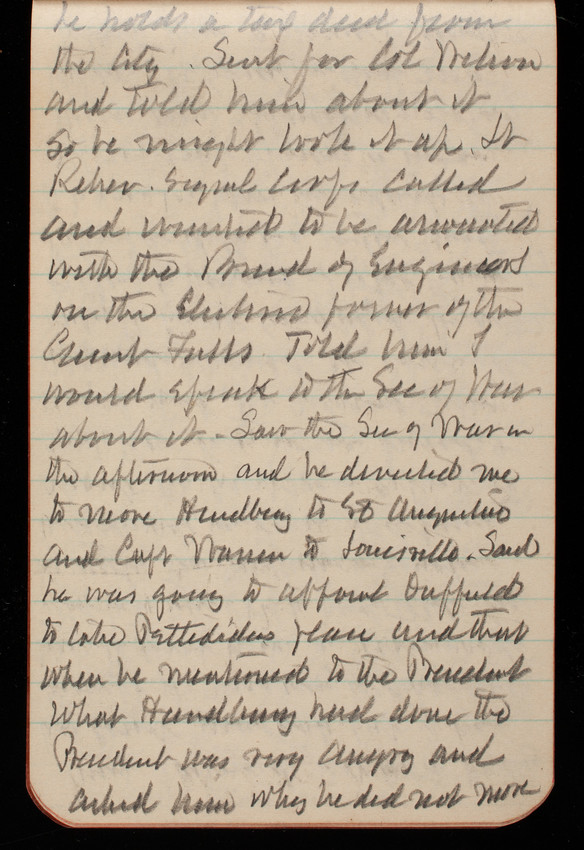 he holds a tax deed from
the City. Sent for Col Wilson
and told him about it
so he might look it up. Lt
Reber. Signal Corps called
and wanted to be associated
with the Board of Engineers
on the Electric power of the
Great Falls. Told him I
would speak to the Sec of War
about it. Saw the Sec of War in
the afternoon and he directed me
to move Handbury to St Augustine
and Capt Warren to Louisville. Said
he was going to appoint Duffield
to take place and that
when he mentioned to the President
What Handbury had done the
President was very angry and
asked him why he did not move